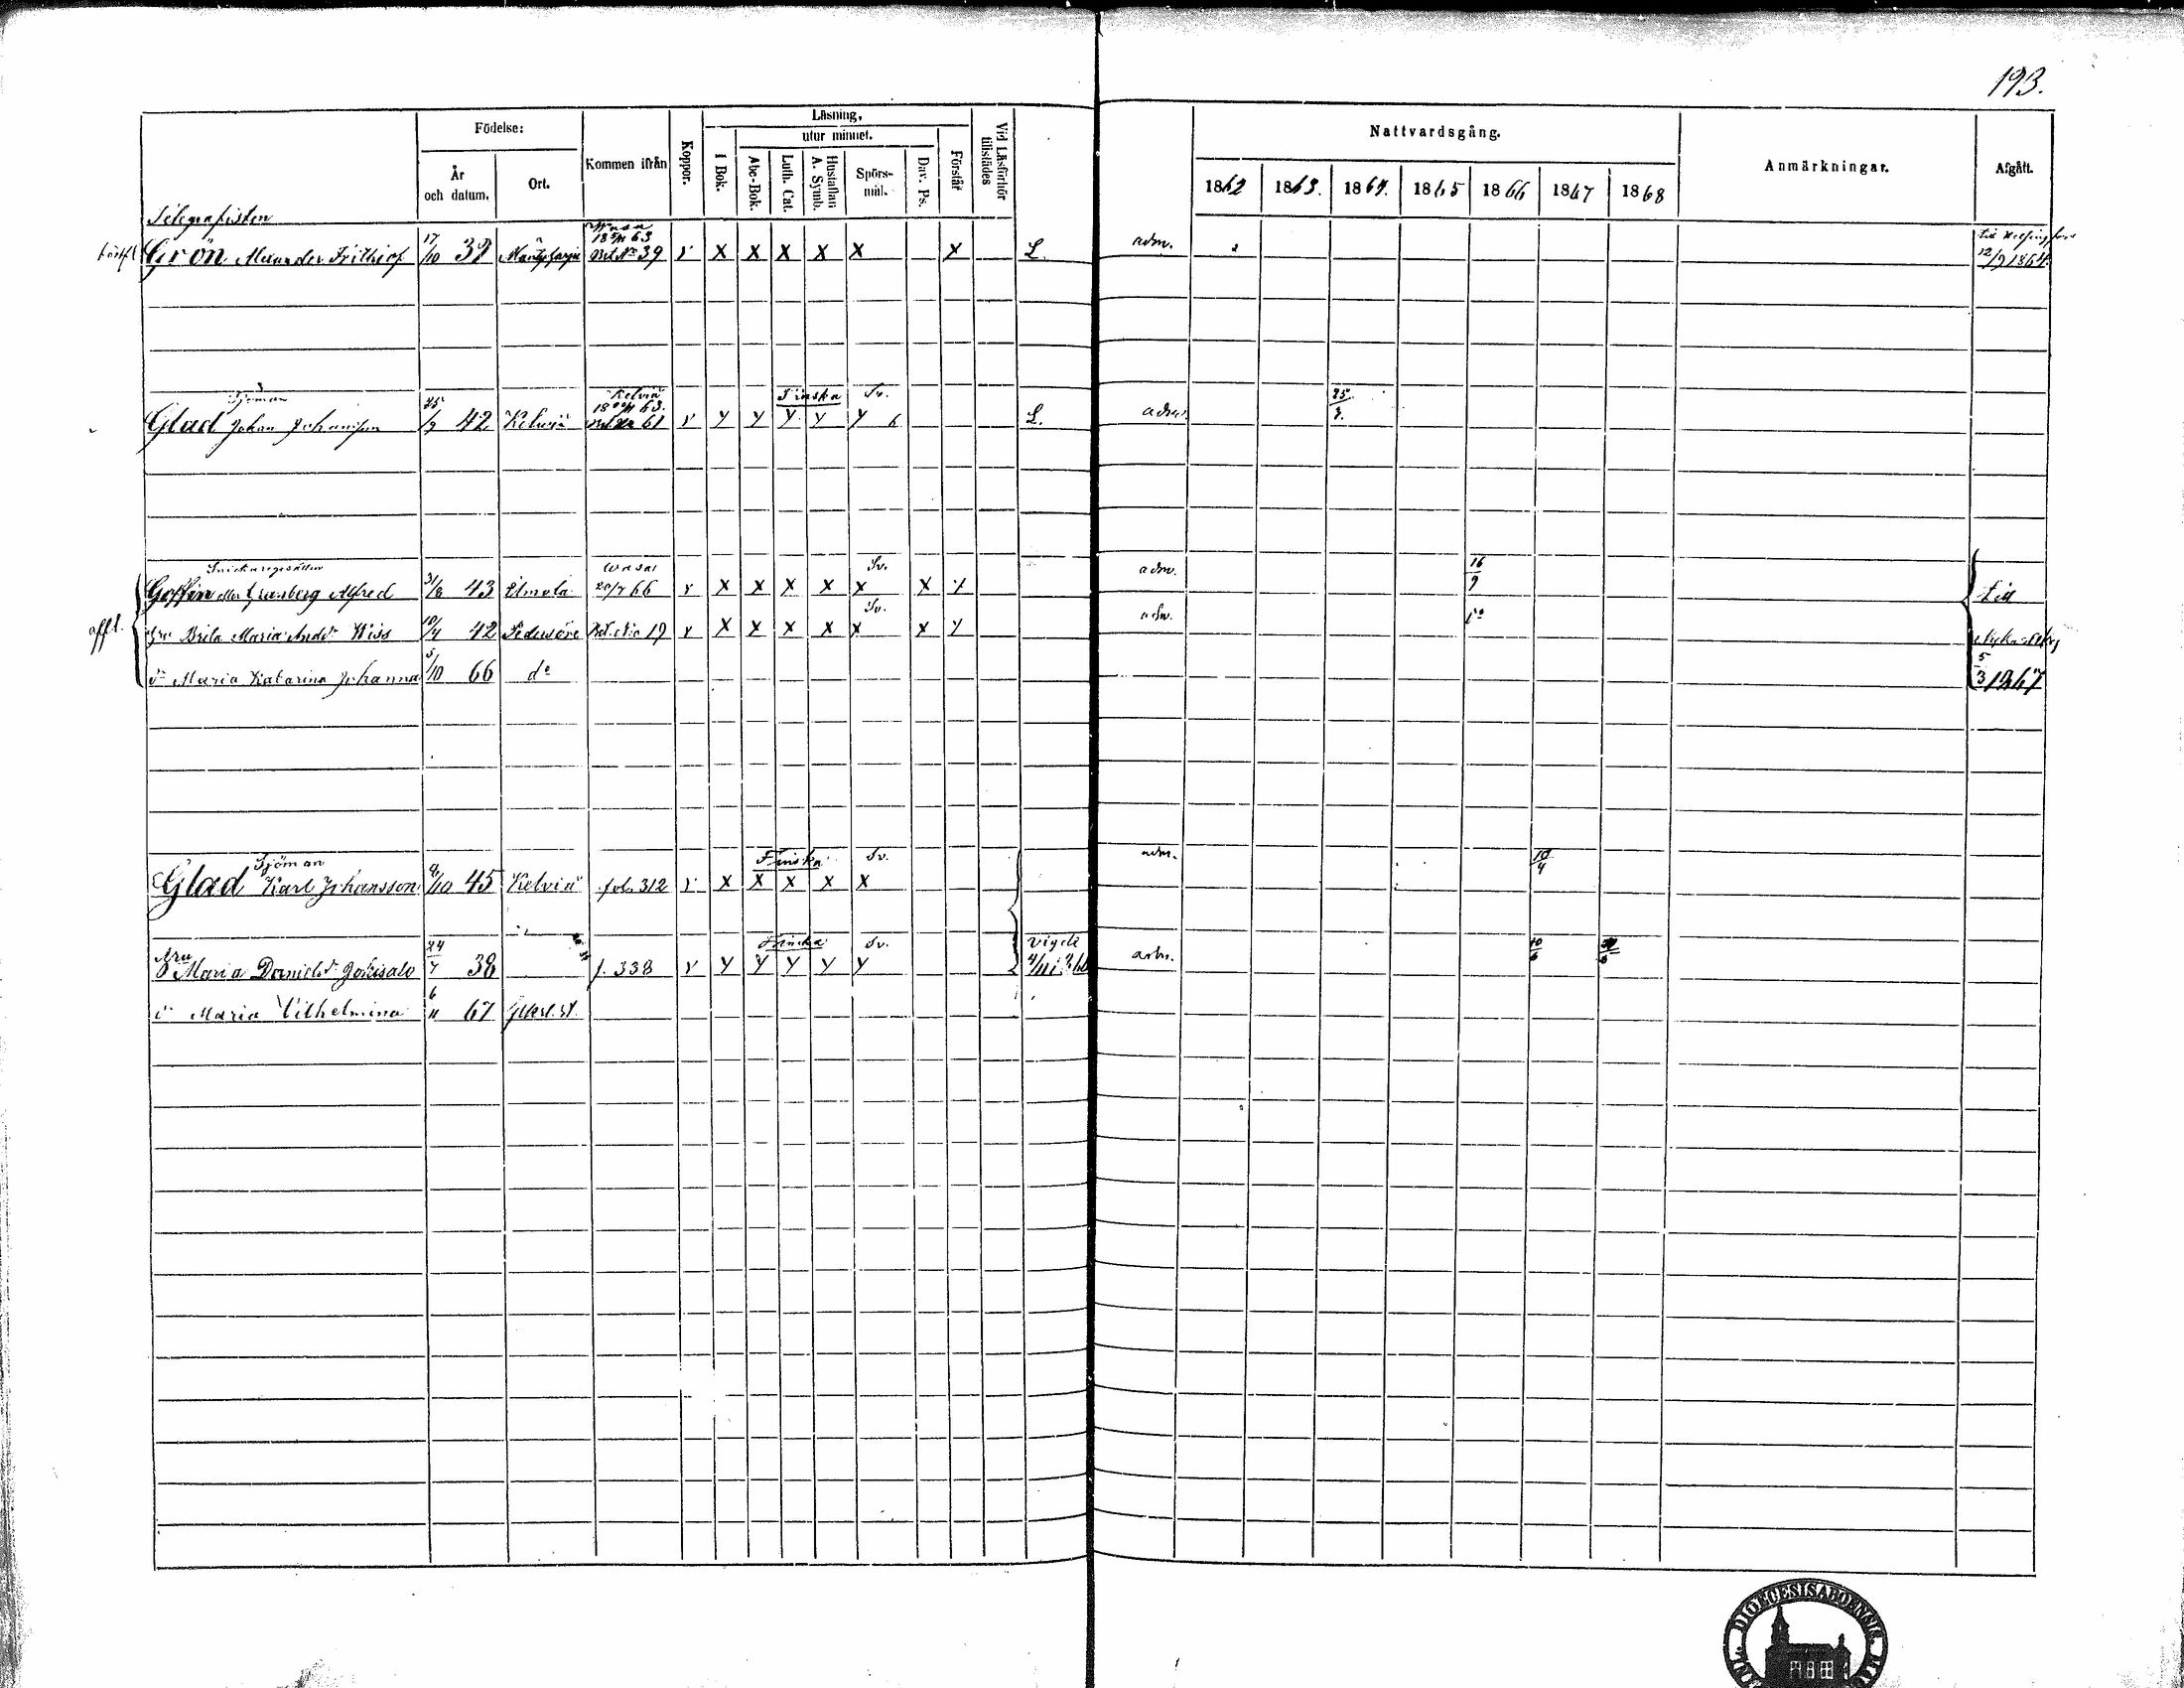 193.
Födelse:
År och datum.
Ort.
Kommen ifrån
Koppor.
Läsning.
utur minnet.
I Bok.
Abc-Bok.
Luth. Cat.
Hustaflan A. Symb.
Spörsmål.
Dav. Ps.
Förstår
Vid Läsförhör tillstädes
Nattvardsgång.
1862 1863. 1864. 1865 1866 1867 1868
Anmärkningar.
Afgått.
Telegrafisten
Grön Alexander Frithiof 17/10 38 Wasa 63 Bet. No 39 v X X X X X X L. adm. till Helsingfors 12/9 1864.
Sjöman Kelviä Finska Sv.
Glad Johan Johansson 25/9 42 Kelviä 63. 61 v Y Y Y Y Y 6 L. adm. 25
Wasa Sv.
Goffin eller Granberg Alfred 31/8 43 Ilmola 20/7 66 v X X X X X X Y adm. 16/9 till
Sv.
affl. Brita Maria Andr Wiss 10/4 42 Pedersöre Bet. No 19 v X X X X X X Y adm.
Maria Katarina Johanna 5/10 66 do 5/3 1867
Sjöman Finska Sv. adm.
Glad Karl Johansson /10 45 Kelviä fol. 312 v X X X X X 10/4
Finska Sv. vigde
Hru Maria Danielsdr Jokisalo 24/7 38 f. 338 v Y Y Y Y Y adm.
Maria Vilhelmina 6/11 67
DIOECESIS ABOENSIS